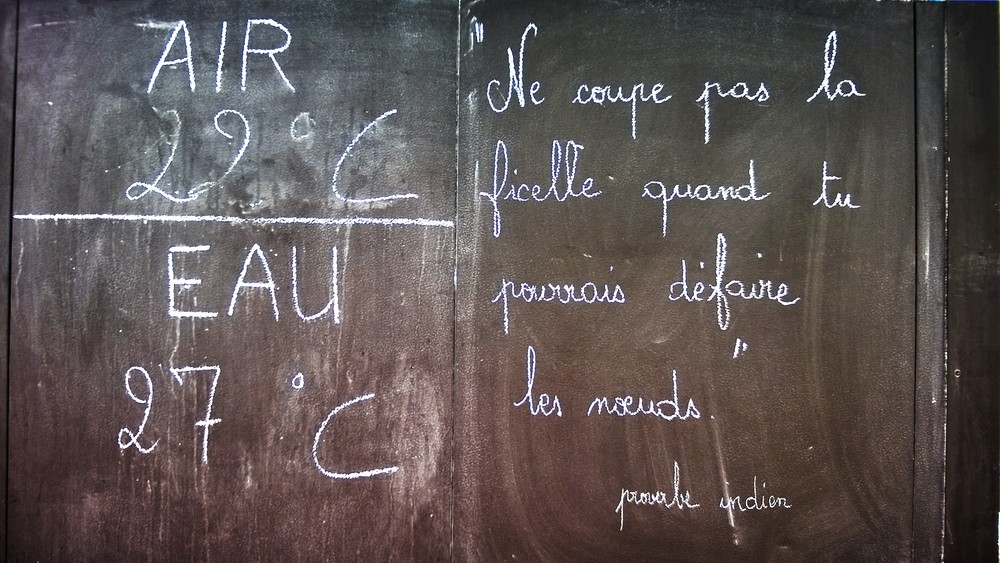 AIR
22 °C
EAU
27 °C
"Ne coupe pas la
ficelle quand tu
pourrais défaire
les nœuds."
proverbe indien